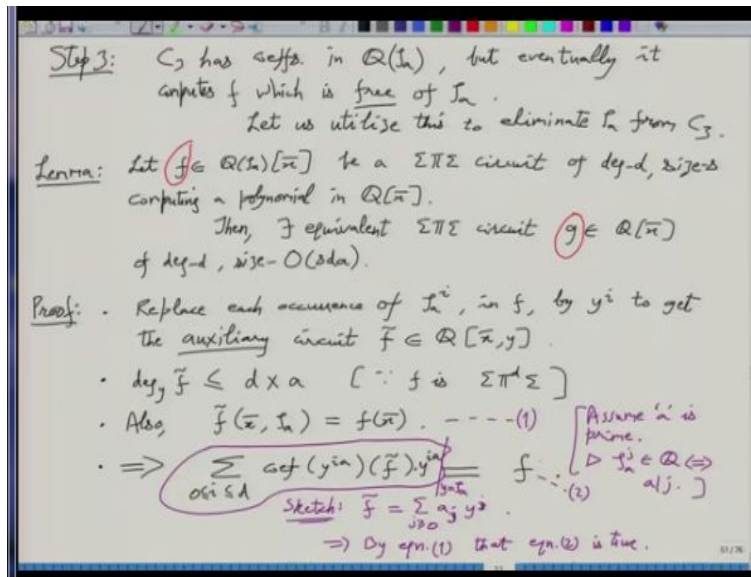 Step 3: C₃ has coeffs. in ℚ(ζₐ), but eventually it
computes f which is free of ζₐ.
Let us utilise this to eliminate ζₐ from C₃.
Lemma: Let f ∈ ℚ(ζₐ)[x̄] be a ΣΠΣ circuit of deg-d, size-s
computing a polynomial in ℚ[x̄].
Then, ∃ equivalent ΣΠΣ circuit g ∈ ℚ[x̄]
of deg-d, size-O(sda).
Proof: · Replace each occurrence of ζₐⁱ, in f, by yⁱ to get
the auxiliary circuit f̃ ∈ ℚ[x̄,y].
· deg_y f̃ ≤ d × a [∵ f is ΣΠᵈΣ]
· Also, f̃(x̄, ζₐ) = f(x̄). ----(1)
· ⇒ Σ_{0≤i≤d} coef(y^{ia})(f̃)·y^{ia} |_{y=ζₐ} = f ...(2)
[Assume 'a' is
prime.
▷ ζₐʲ ∈ ℚ ⇔
a|j. ]
Sketch: f̃ = Σ_{j≥0} a_j yʲ.
⇒ By eqn.(1) that eqn.(2) is true.
51/76